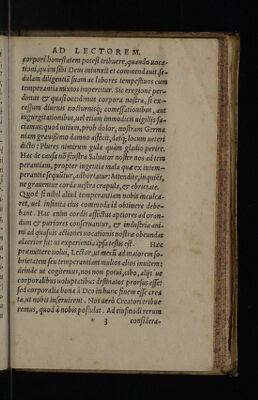 AD LECTOREM.
corpori honestatem potest tribuere, quando uoca-
tioni, quàm sibi Deus iniunxit et commendauit, se-
dulam diligentiã suam ac labores tempestiuos cum
temperantia mixtos impertitur. Sic è regione per-
dimus & quasi occidimus corpora nostra, si ex-
cessum diurnis nocturnisq́; comessationibus, aut
ingurgitationibus, uel etiam immodicis uigilijs fa-
ciamus: quod uitium, proh dolor, nostram Germa
niam grauissimo damno affecit, datq́; locum ueteri
dicto: Plures nimirum gula quàm gladio perire.
Hac de causa nõ frustra Saluator noster nos ad tem
perantiam, propter ingentia mala quæ ex intem-
perantia sequũtur, adhortatur: Attendite, inquiẽs,
ne grauentur corda uestra crapula, & ebrietate.
Quod si nihil aliud temperantiam nobis inculca-
ret, uel infinita eius commoda id obtinere debe-
bant. Hac enim cordis affectus aptiores ad oran-
dum & puriores conseruantur, & industria ani-
mi ad quasuis actiones uocationis nostræ obeundas
alacrior fit: ut experientia ipsa testis est. Hæc
præmittere uolui, Lector, ut mecũ ad maiorem so-
brietatem seu temperantiam multos alios inuitem:
deinde ut cogitemus, nos non potui, cibo, alijs ue
corporalibus uoluptatibus destinatos prorsus esse:
sed corporalia bona à Deo in hunc finem esse crea
ta, ut nobis inseruirent. Nos uerò Creatori tribue
remus, quod à nobis postulat. Ad eiusmodi rerum
* 3 considera-